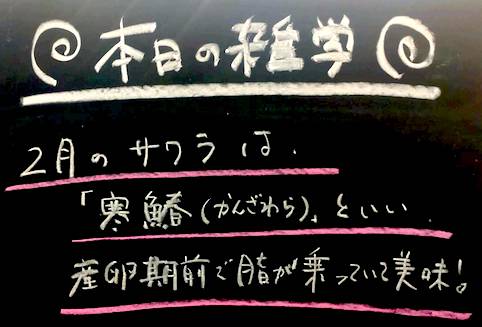 本日の雑学
2月のサワラは、
「寒鰆(かんざわら)」といい、
産卵期前で脂が乗っていて美味!